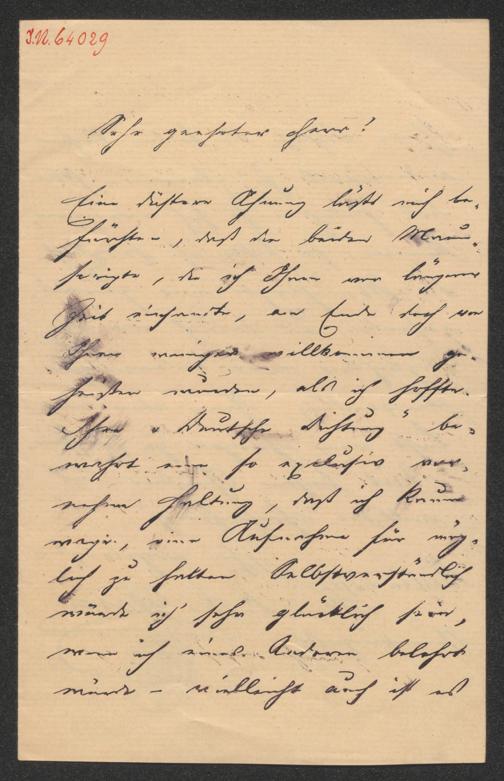 J.N. 64029
Sehr geehrter Herr!
Eine düstere Ahnung läßt mich be-
fürchten, daß die beiden Manu-
scripte, die ich Ihnen vor längerer
Zeit einsandte, am Ende doch von
Ihnen weniger willkommen ge-
heißen wurden, als ich hoffte.
Ihre „Deutsche Dichtung" be-
wahrt eine so exclusiv vor-
nehme Haltung, daß ich kaum
wage, eine Aufnahme für mög-
lich zu halten. Selbstverständlich
würde ich sehr glücklich sein,
wenn ich eines Anderen belehrt
würde – vielleicht auch ist es